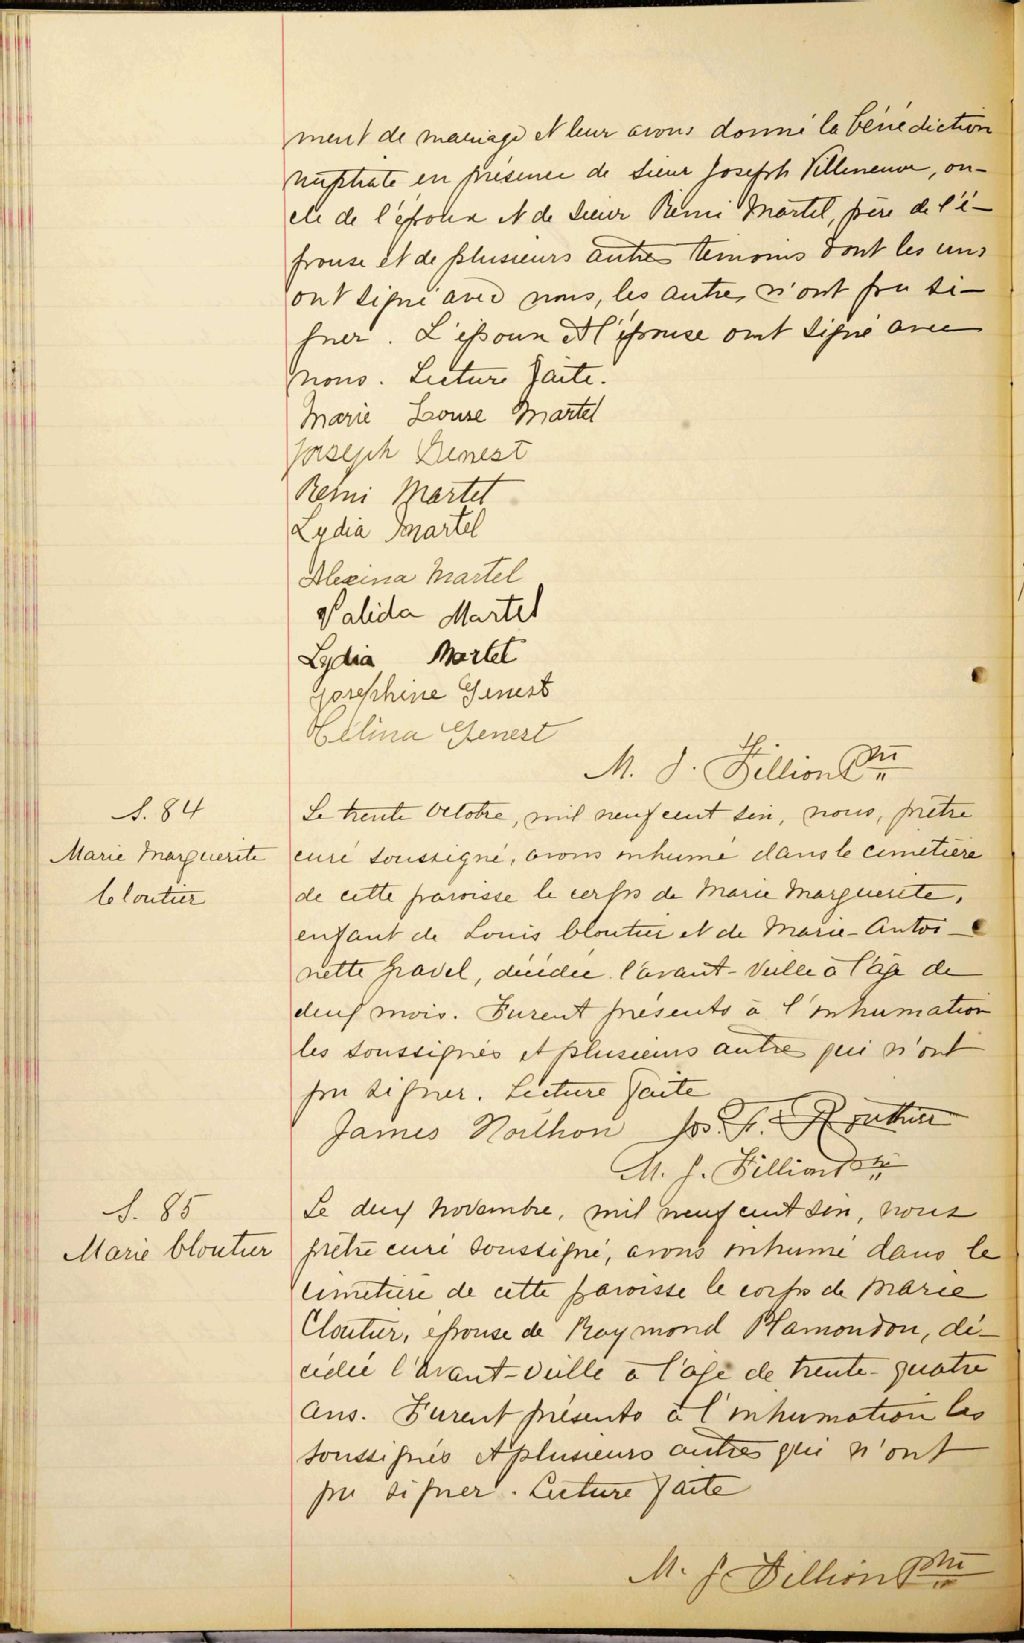 ment de mariage et leur avons donné la bénédiction
nuptiale en présence de Sieur Joseph Villeneuve, on-
cle de l'époux et de Sieur Rémi Martel, père de l'é-
pouse et de plusieurs autres témoins dont les uns
ont signé avec nous, les autres n'ont pu si-
gner. L'époux et l'épouse ont signé avec
nous. Lecture faite.
Marie Louise Martel
Joseph Genest
Remi Martel
Lydia Martel
Alexina Martel
Valida Martel
Lydia Martel
Josephine Genest
Célina Genest
M. J. Fillion Ptre
S. 84
Marie Marguerite
Cloutier
Le trente Octobre, mil neuf cent six, nous, prêtre
curé soussigné, avons inhumé dans le cimetière
de cette paroisse le corps de Marie Marguerite,
enfant de Louis Cloutier et de Marie-Antoi-
nette Gravel, décédée l'avant-veille à l'âge de
deux mois. Furent présents à l'inhumation
les soussignés et plusieurs autres qui n'ont
pu signer. Lecture faite
James Noithon Jos. F. Routhier
M. J. Fillion Ptre
S. 85
Marie Cloutier
Le deux Novembre, mil neuf cent six, nous
prêtre curé soussigné, avons inhumé dans le
cimetière de cette paroisse le corps de Marie
Cloutier, épouse de Raymond Plamondon, dé-
cédée l'avant-veille à l'âge de trente-quatre
ans. Furent présents à l'inhumation les
soussignés et plusieurs autres qui n'ont
pu signer. Lecture faite
M. J. Fillion Ptre